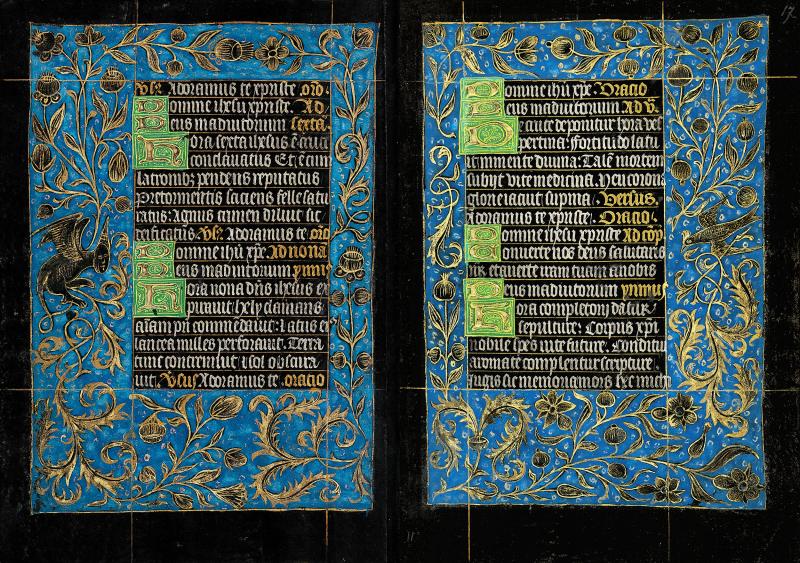 Vs. Adoramus te xpriste. ord.
Domine ihesu xpriste. Ad
Deus in adiutorium sexta.
Hora sexta ihesus e cruci
conclavatus Et e cum
latronibz pendens reputatus
Pre tormentis saciens felle satu
ratus: Agnus crimen diluit sic
Vs. Adoramus te xpriste. ord
Domine ihu xpe. Ad nona
Deus in adiutorium ymns
Hora nona dns ihesus ex
piravit: hely clamans
aiam pri commedavit: latus ei
lancea miles perforavit: Terra
tunc contremuit: sol obscura
vit: Vsus Adoramus te. oracio
17.
Domine ihu xpe. Oracio
Deus in adiutorium Ad v.
De cruce deponitur hora ves
pertina: fortitudo latu
it in mente divina: Tale mortem
subyt vite medicina. Heu corona
glorie iacuit supina. Versus.
Adoramus te xpriste. Oracio.
Domine ihesu xpriste Ad cop
Converte nos deus salutaris
nr et averte iram tuam a nobis
Deus in adiutorium ymnus
Hora completorij datur
sepulture: Corpus xpi
nobile spes vite future. Conditur
aromate complentur scripture
Jugis sit memoria mors hec michi